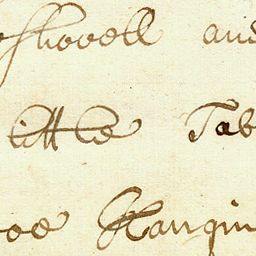 shovell and
little Tab
oe Hangin